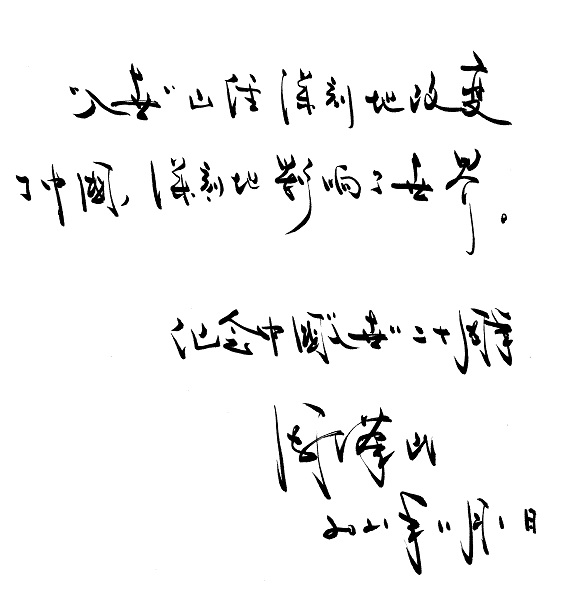 “入世”已经深刻地改变
了中國，深刻地影响了世界。
纪念中國“入世”二十周年
周漢民
2021年11月1日